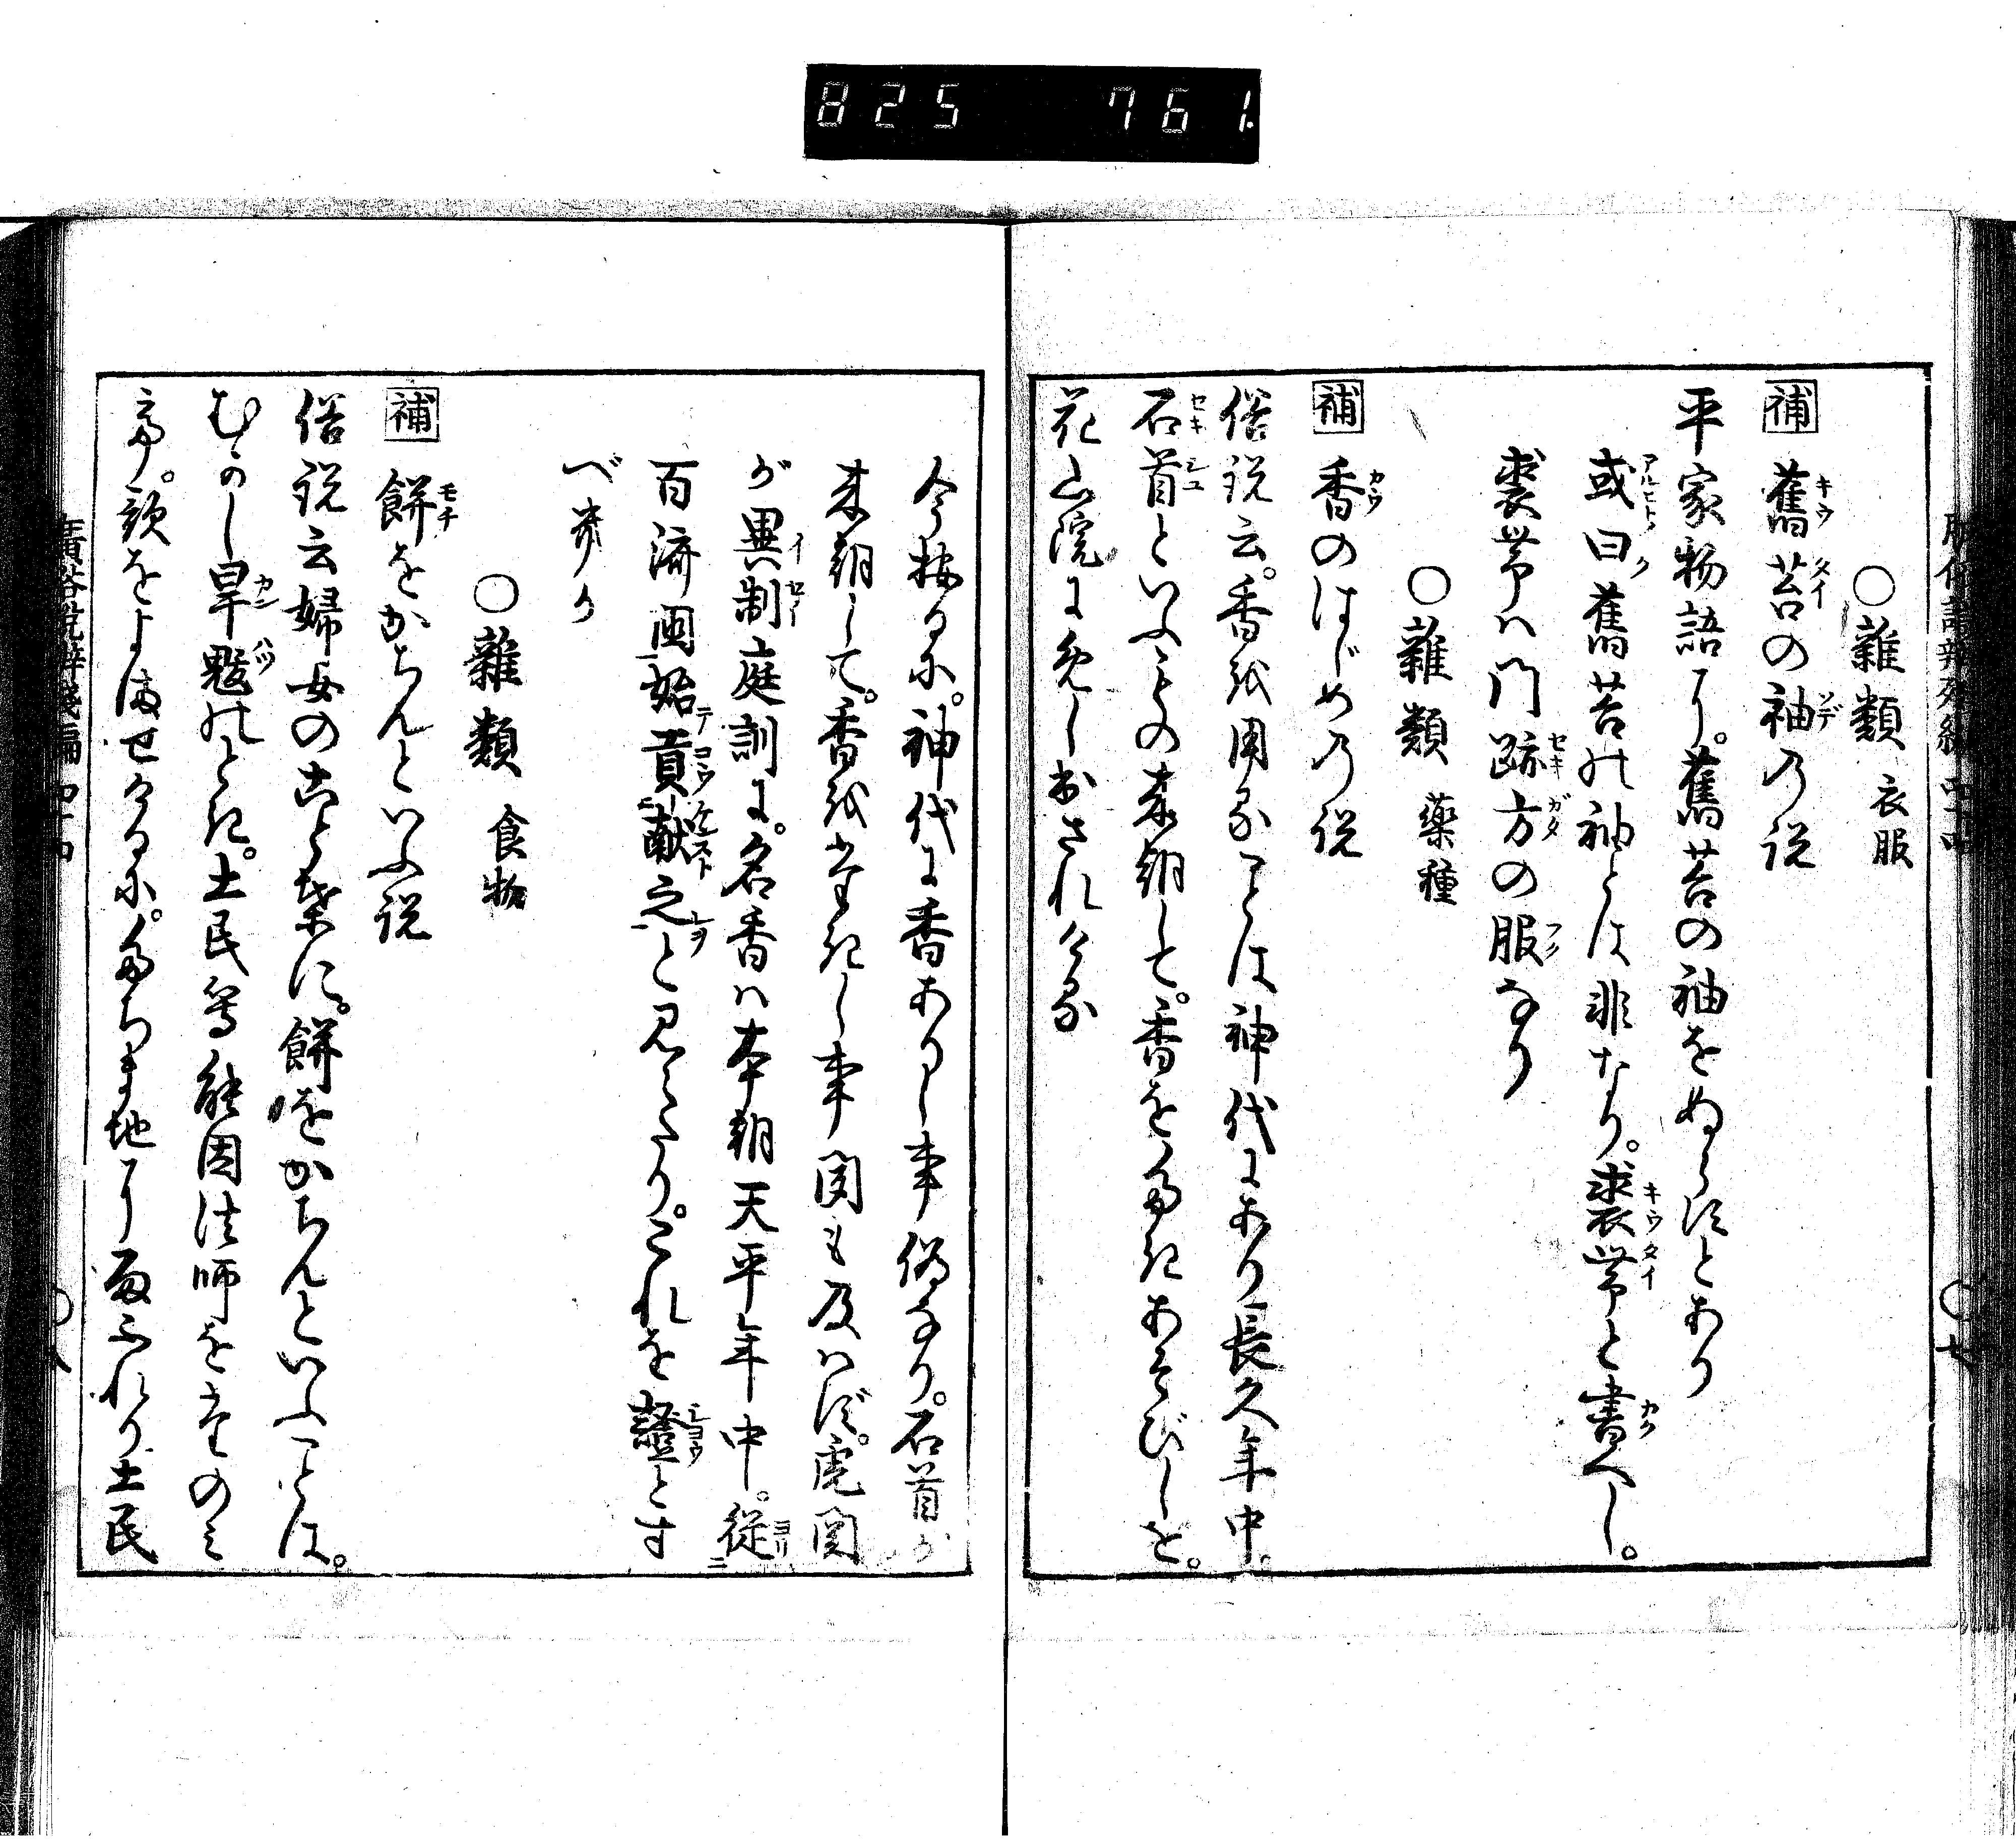 825 761.
○雜類 衣服
補 舊苔の袖の説
平家物語に。舊苔の袖をぬらすとあり
或曰舊苔の袖とは非なり。裘帯と書べし。
裘帯ハ門跡方の服なり
○雜類 藥種
補 香のはじめの説
俗説云。香を用ることは神代にあり長久年中。
石首といふもの来朝して。香をたきあそびしを。
花山院に免しおされける
今按るに。神代に香ありし事偽なり。石首が
来朝して。香をたきし事聞も及ハず。虎関
が異制庭訓に。名香ハ本朝天平年中。従
百済國始貢献之と見えたり。これを證とす
べき
○雜類 食物
補 餅をかちんといふ説
俗説云婦女のことばに。餅をかちんといふことは。
むかし旱魃のとき。土民等能因法師をたのミ
て。歌をよませけるに。たちまち地に雨ふれり土民
廣益俗説辯殘編 四十四 ○八